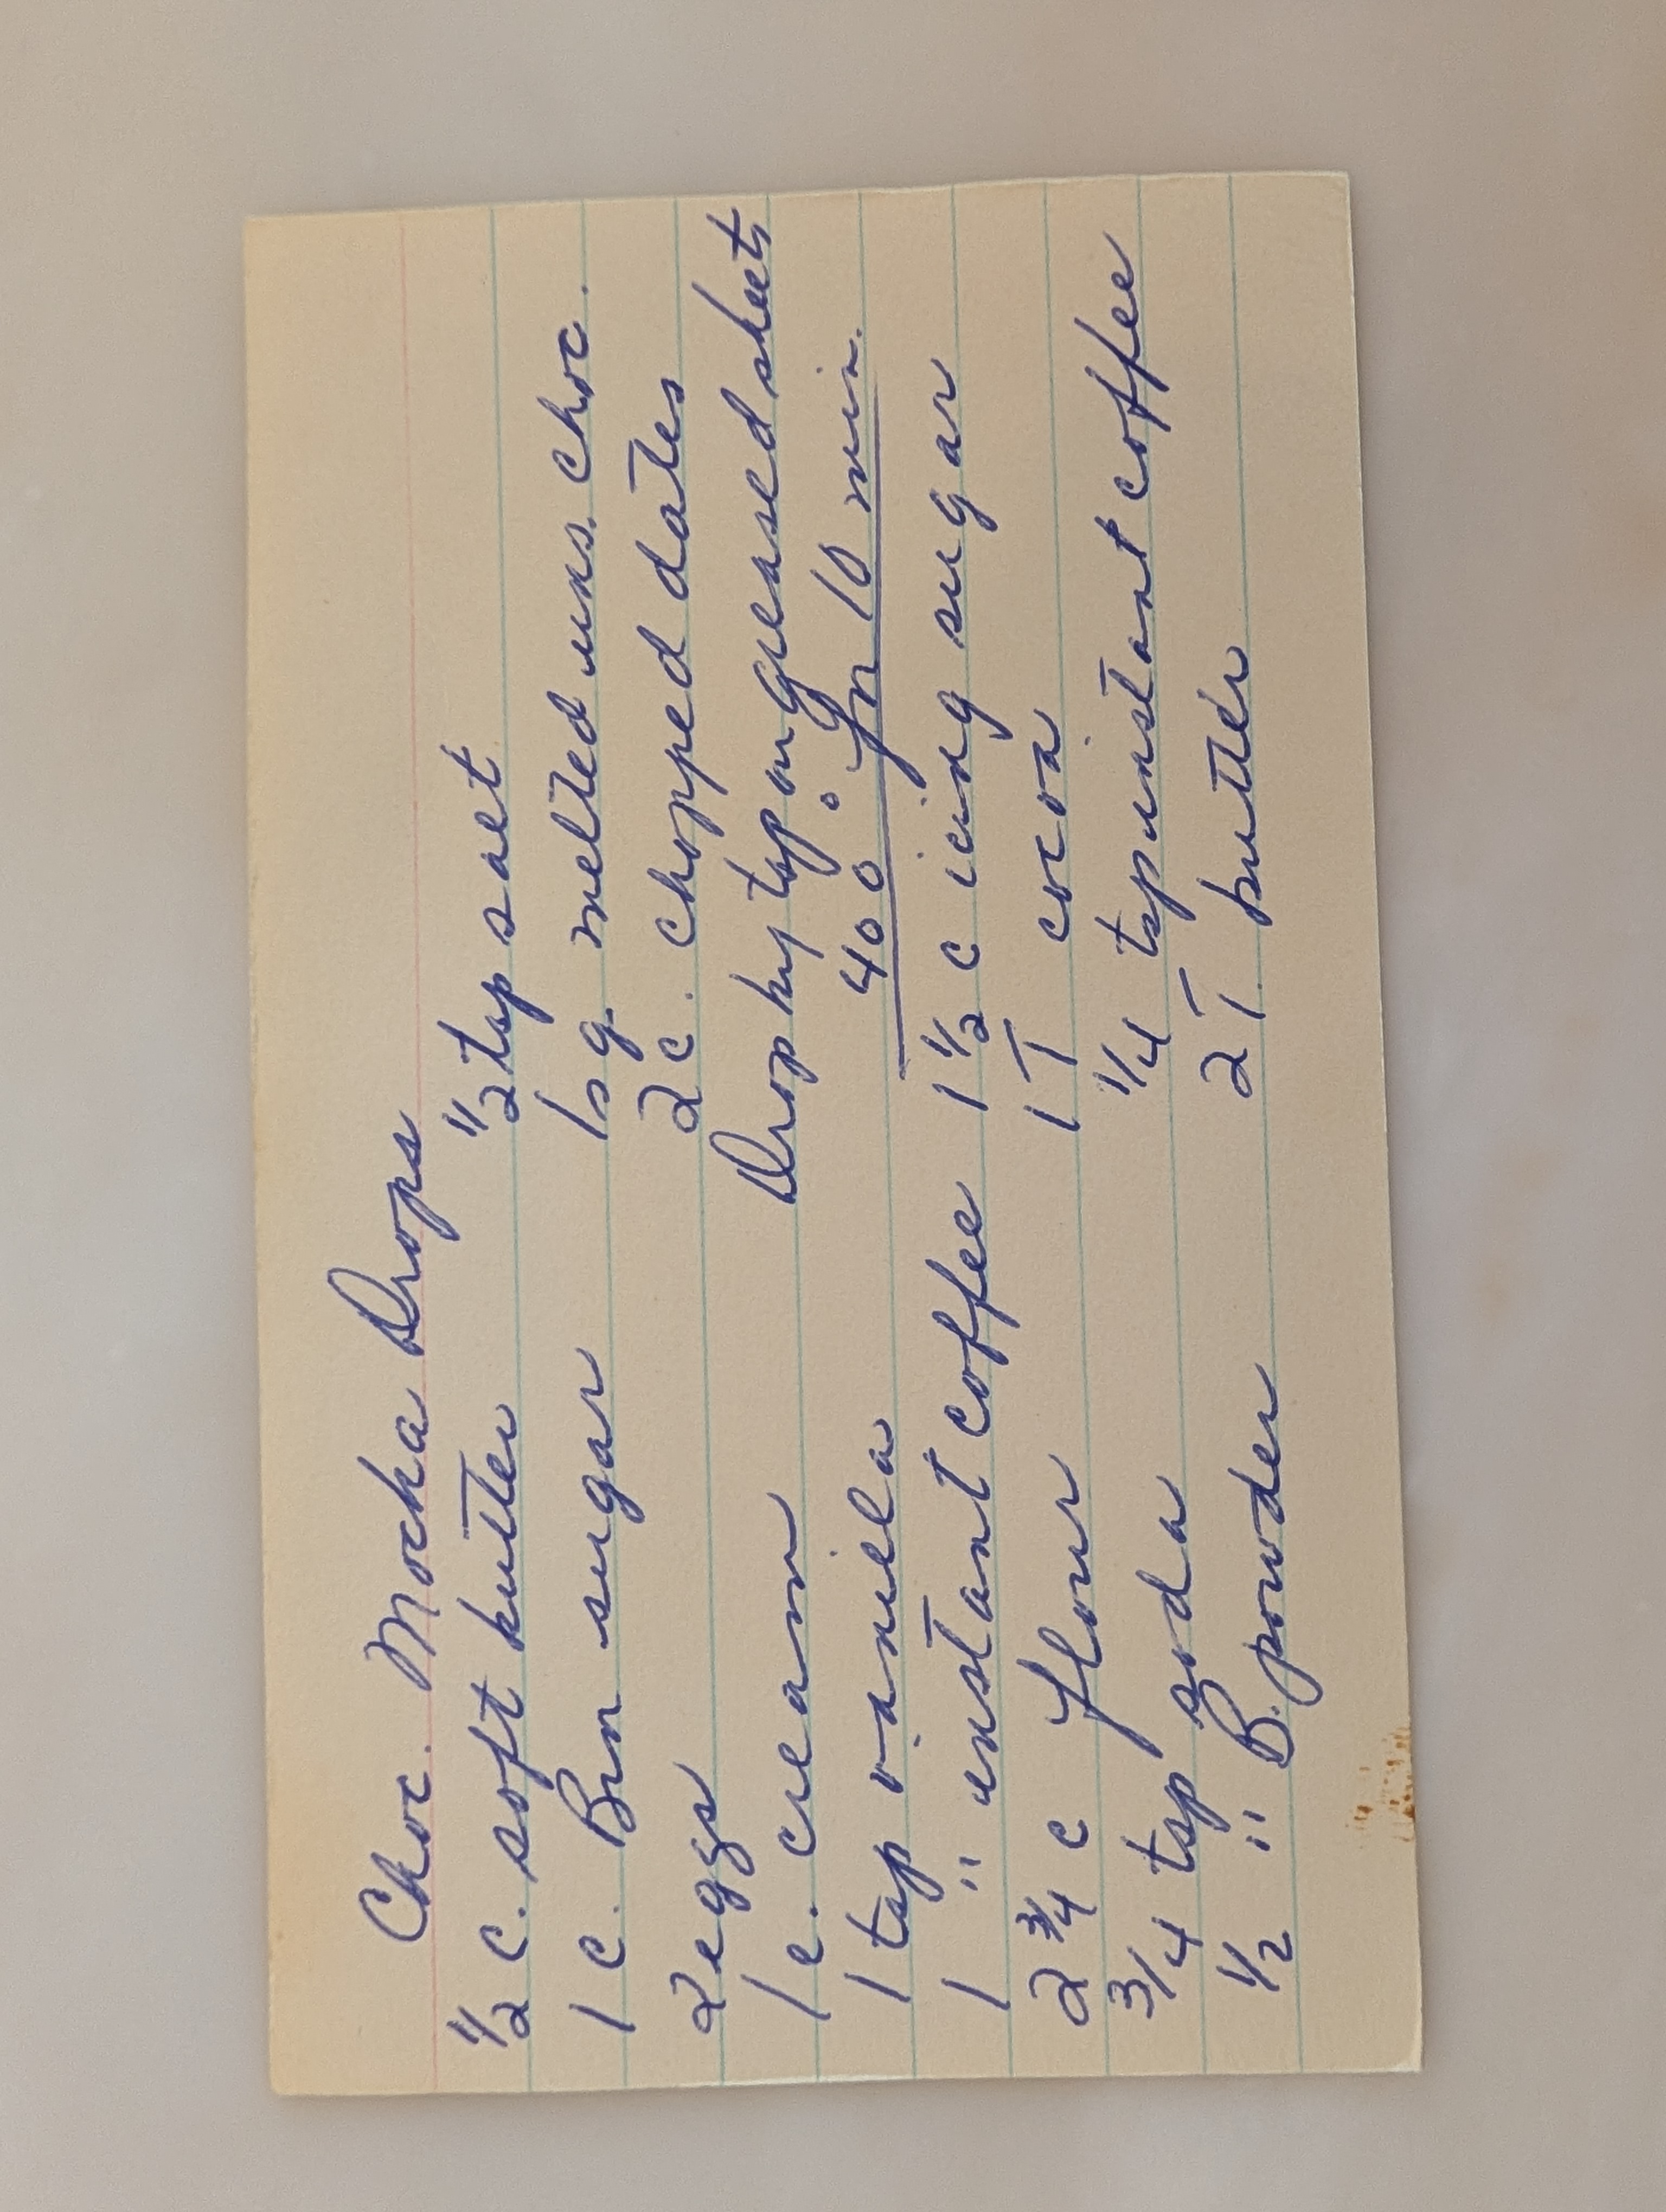 Choc. Mocha Drops
1/2 c. soft butter
1 c. Brn sugar
2 eggs
1 c. cream
1 tsp vanilla
1 " instant coffee
2 3/4 c flour
3/4 tsp soda
1/2 " B. powder
1/2 tsp salt
1 sq. melted uns. choc.
2 c. chopped dates
Drop by tsp on greased sheet
400° for 10 min.
1 1/2 c icing sugar
1 T cocoa
1/4 tsp instant coffee
2 T. butter